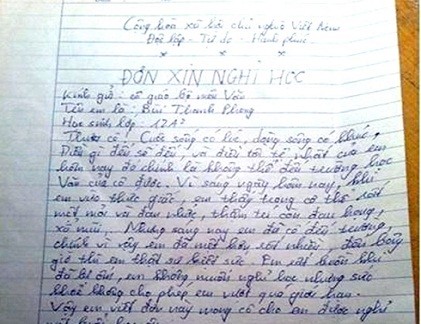 Cộng hoà xã hội chủ nghĩa Việt Nam
Độc lập - Tự do - Hạnh phúc
ĐƠN XIN NGHỈ HỌC
Kính gửi: cô giáo bộ môn Văn
Tên em là: Bùi Thanh Phong
Học sinh lớp: 12A7
Thưa cô! Cuộc sống có lúc, dòng sông có khúc,
Điều gì đến sẽ đến, và điều tồi tệ nhất của em
hôm nay đó chính là không thể đến trường học
Văn của cô được. Vì sáng ngày hôm nay, khi
em vừa thức giấc, em thấy trong cơ thể rất
mệt mỏi và đau nhức, thậm chí còn đau họng,
xổ mũi. Nhưng sáng nay em đã cố đến trường,
chính vì vậy em đã mệt rất nhiều, đến bây
giờ thì em thật sự kiệt sức. Em rất buồn khi
đã bị ốm, em không muốn nghỉ học nhưng sức
khoẻ không cho phép em vượt quá giới hạn.
Vậy em viết đơn này mong cô cho em được nghỉ